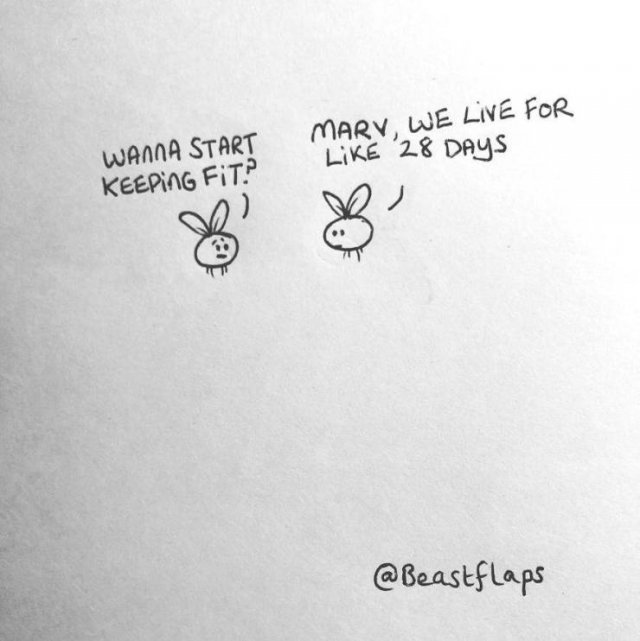 WANNA START
KEEPING FIT?
MARV, WE LIVE FOR
LIKE 28 DAYS
@Beastflaps